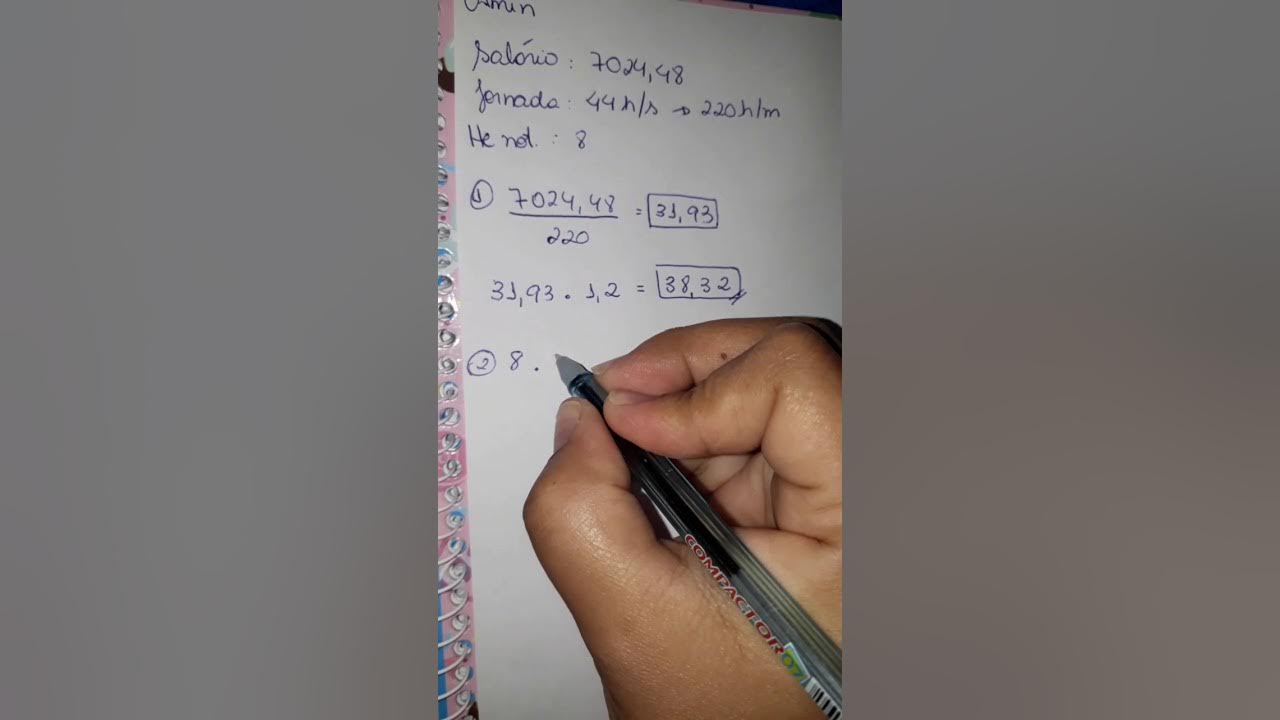 Salário : 7024,48
Jornada : 44h/s → 220h/m
He not. : 8
① 7024,48 = 31,93
220
31,93 . 1,2 = 38,32
② 8 .
COMPACTOR 07